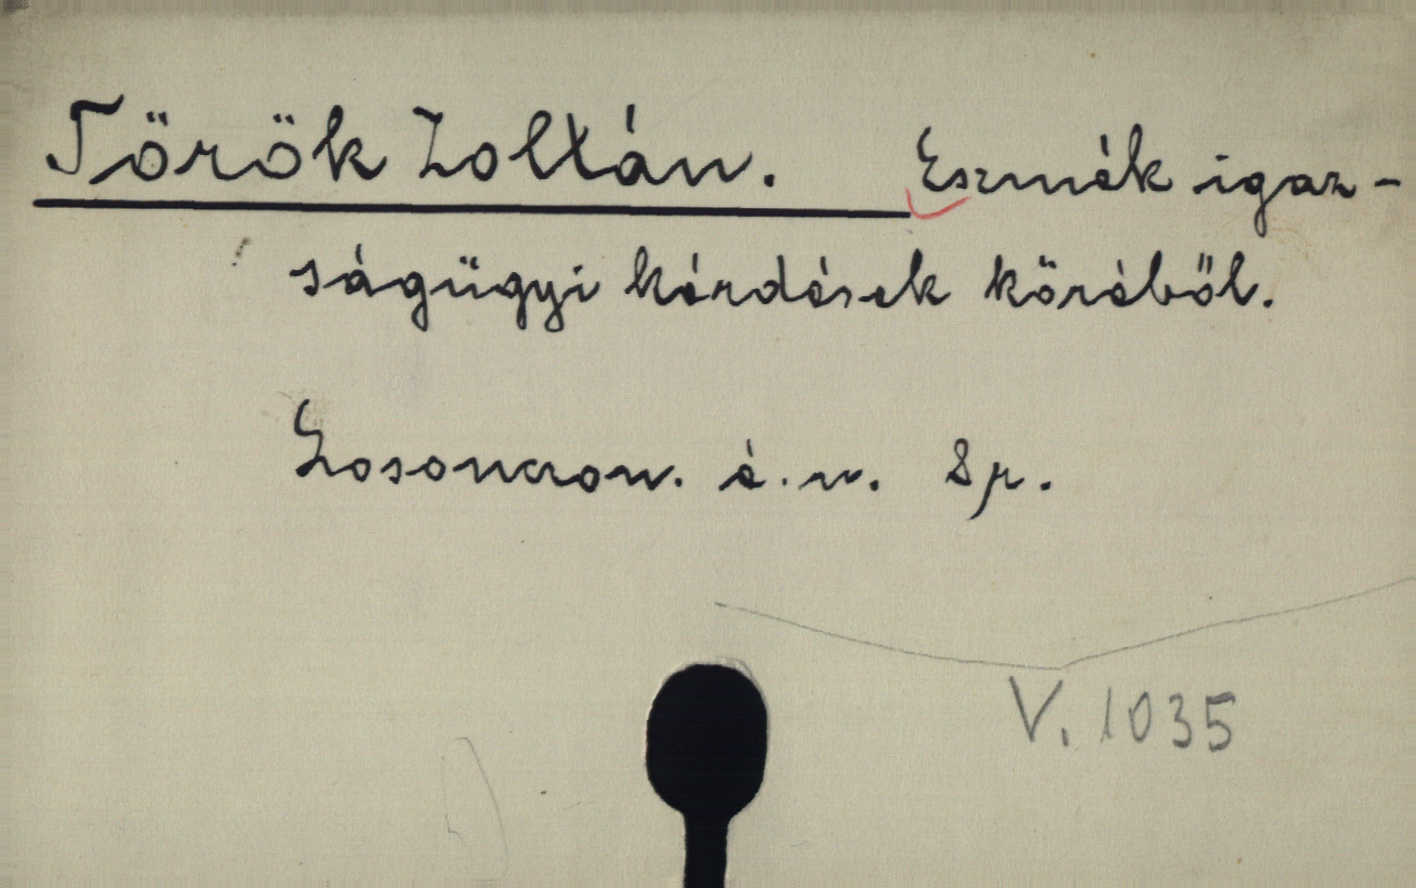 Török Zoltán. Eszmék igaz-
ságügyi kérdések köréből.
Losonczon. é. n. 8r.
V. 1035